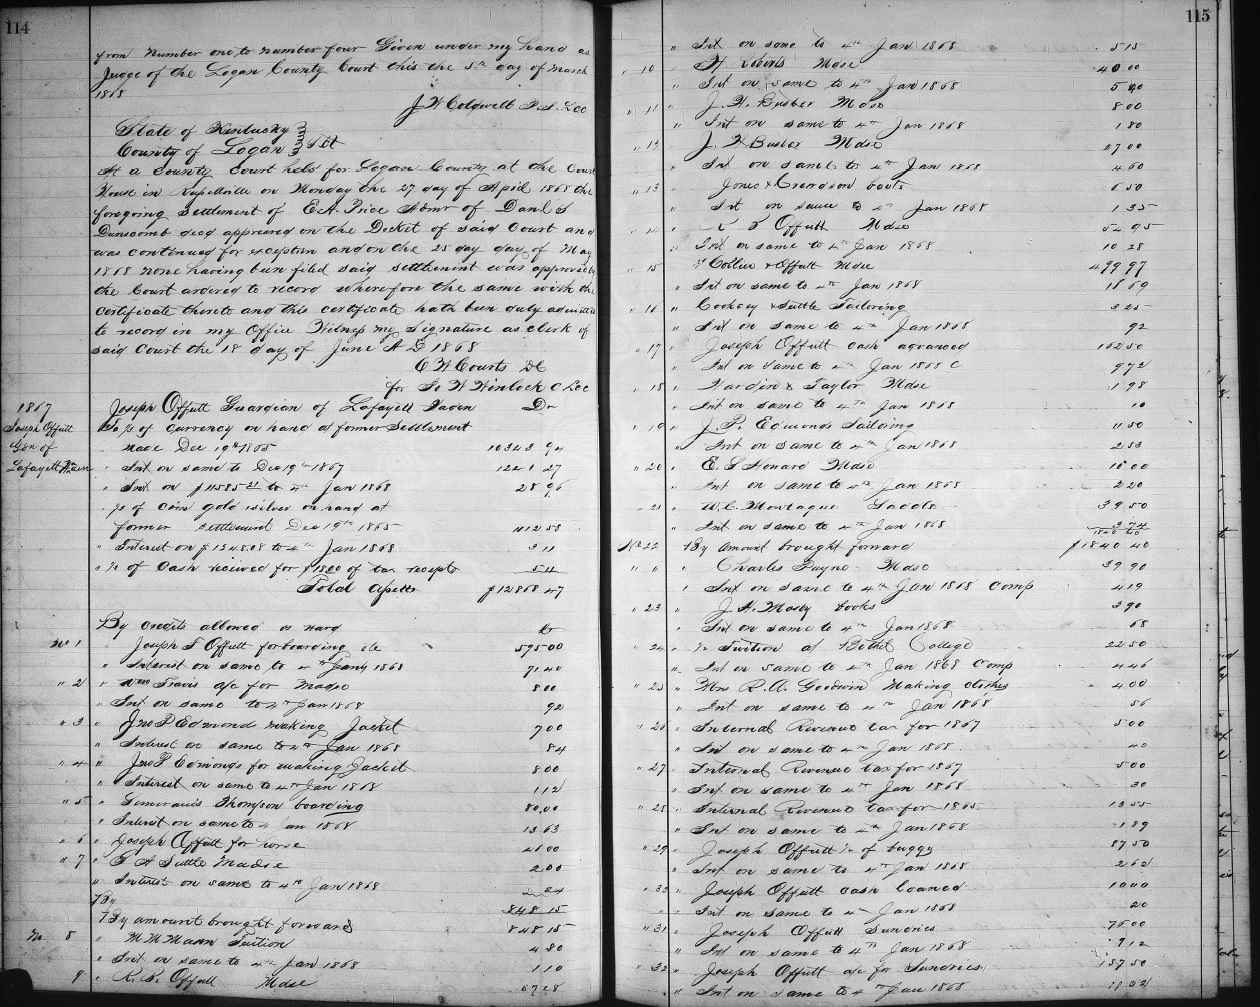 114
from Number one to number four Given under my hand as
Judge of the Logan County Court this the 5th day of March
1868
State of Kentucky
County of Logan Sct
At a County Court held for Logan County at the Court
House in Russellville on Monday the 27 day of April 1868 the
foregoing settlement of E. A. Price Admr of Danl S
Dunscomb decd appeared on the Docket of said Court and
was continued for exception and on the 25 day day of May
1868 none having been filed said settlement was approved by
the Court ordered to record wherefore the same with the
certificate thereto and this certificate hath been duly admitted
to record in my Office Witness my Signature as clerk of
said Court the 18 day of June A D 1868
C W Courts DC
for W Winlock C LCC
1867
Joseph Offutt
Gdn of
Lafayett
Joseph Offutt Guardian of Lafayett Dr
To ps of currency on hand at former Settlement
made Dec 19th 1865 10343 94
" Int on same to Dec 19th 1867 1241 27
" Int on to 4th Jan 1868 28 96
" ps of coin gold & silver on hand at
former settlement Dec 19th 1865
" Interest on to 4th Jan 1868 3 11
" ps of Cash received for of tax receipts
Total Assetts $12868 47
By credits allowed as Gard Cr
No 1 " Joseph S Offutt for boarding etc 595 00
" Interest on same to 4th Jany 1868 71 40
" 2 " Wm Travis a/c for Madse 8 00
" Int on same to 4th Jan 1868 92
" 3 " Jno P Edmond making Jacket 7 00
" Interest on same to 4th Jan 1868 84
" 4 " Jno P Edmonds for making Jacket 8 00
" Interest on same to 4th Jan 1868 1 12
" 5 " Thompson boarding 80.00
" Interest on same to 4 Jan 1868 13 63
" 6 " Joseph Offutt for horse
" 7 " Suttle Madse 2 00
" Interest on same to 4th Jan 1868 24
By 848 15
By amount brought forward 848 15
No 8 " M M Mason Tuition 4 80
" Int on same to 4th Jan 1868 1 10
9 " R. B. Offutt Mdse 67 28
115
" Int on same to 4th Jan 1868 5 15
" 10 " Mdse 40 00
" Int on same to 4th Jan 1868 5 40
" 11 " J. H. Busher Mdse 8 00
" Int on same to 4th Jan 1868 1 80
" 12 " J. H Busher Mdse 27 00
" Int on same to 4th Jan 1868 4 60
" 13 " Jones & boots 6 50
" Int on same to 4th Jan 1868 1 35
" 14 " Offutt Mdse 52 95
" Int on same to 4th Jan 1868 10 28
" 15 " Collier & Offutt Mdse 499 97
" Int on same to 4th Jan 1868 18 69
" 16 " Cooksey & Suttle Tailoring 3 25
" Int on same to 4th Jan 1868 92
" 17 " Joseph Offutt cash advanced 162 50
" Int on same to 4th Jan 1868 C 9 72
" 18 " Hardin & Taylor Mdse 1 98
" Int on same to 4th Jan 1868 10
" 19 " J. P. Edmonds Tailoring 11 50
" Int on same to 4th Jan 1868 2 53
" 20 " Mdse 15 00
" Int on same to 4th Jan 1868 2 20
" 21 " W. C. Montague Goods 39 50
" Int on same to 4th Jan 1868 3 74
1840 40
No 22 By amount brought forward $1840 40
" " " Charles Payne Mdse 39 90
" Int on same to 4th Jan 1868 Comp 4 19
" 23 " J. H. Mosly books 3 90
" Int on same to 4th Jan 1868 68
" 24 " Tuition at Bethel College 22 50
" Int on same to 4th Jan 1868 Comp 4 46
" 25 " Mrs R. A. Goodwin Making clothes 4 00
" Int on same to 4th Jan 1868 56
" 26 " Internal Revenue tax for 1867 5 00
" Int on same to 4th Jan 1868 40
" 27 " Internal Revenue tax for 1867 5 00
" Int on same to 4th Jan 1868 30
" 28 " Internal Revenue tax for 1865 13 55
" Int on same to 4th Jan 1868 1 89
" 29 " Joseph Offutt 1/2 of buggy 87 50
" Int on same to 4th Jan 1868 2 62
" 30 " Joseph Offutt cash loaned 10 00
" Int on same to 4th Jan 1868 20
" 31 " Joseph Offutt Sundries 76 00
" Int on same to 4th Jan 1868 9 12
" 32 " Joseph Offutt a/c for Sundries 187 50
" Int on same to 4th Jan 1868 11 02